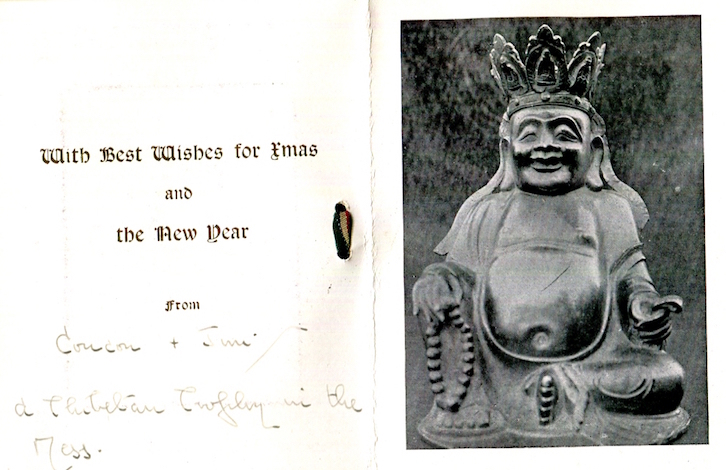 With Best Wishes for Xmas
and
the New Year
From
+
a Thibetan Trophy in the
Mess.